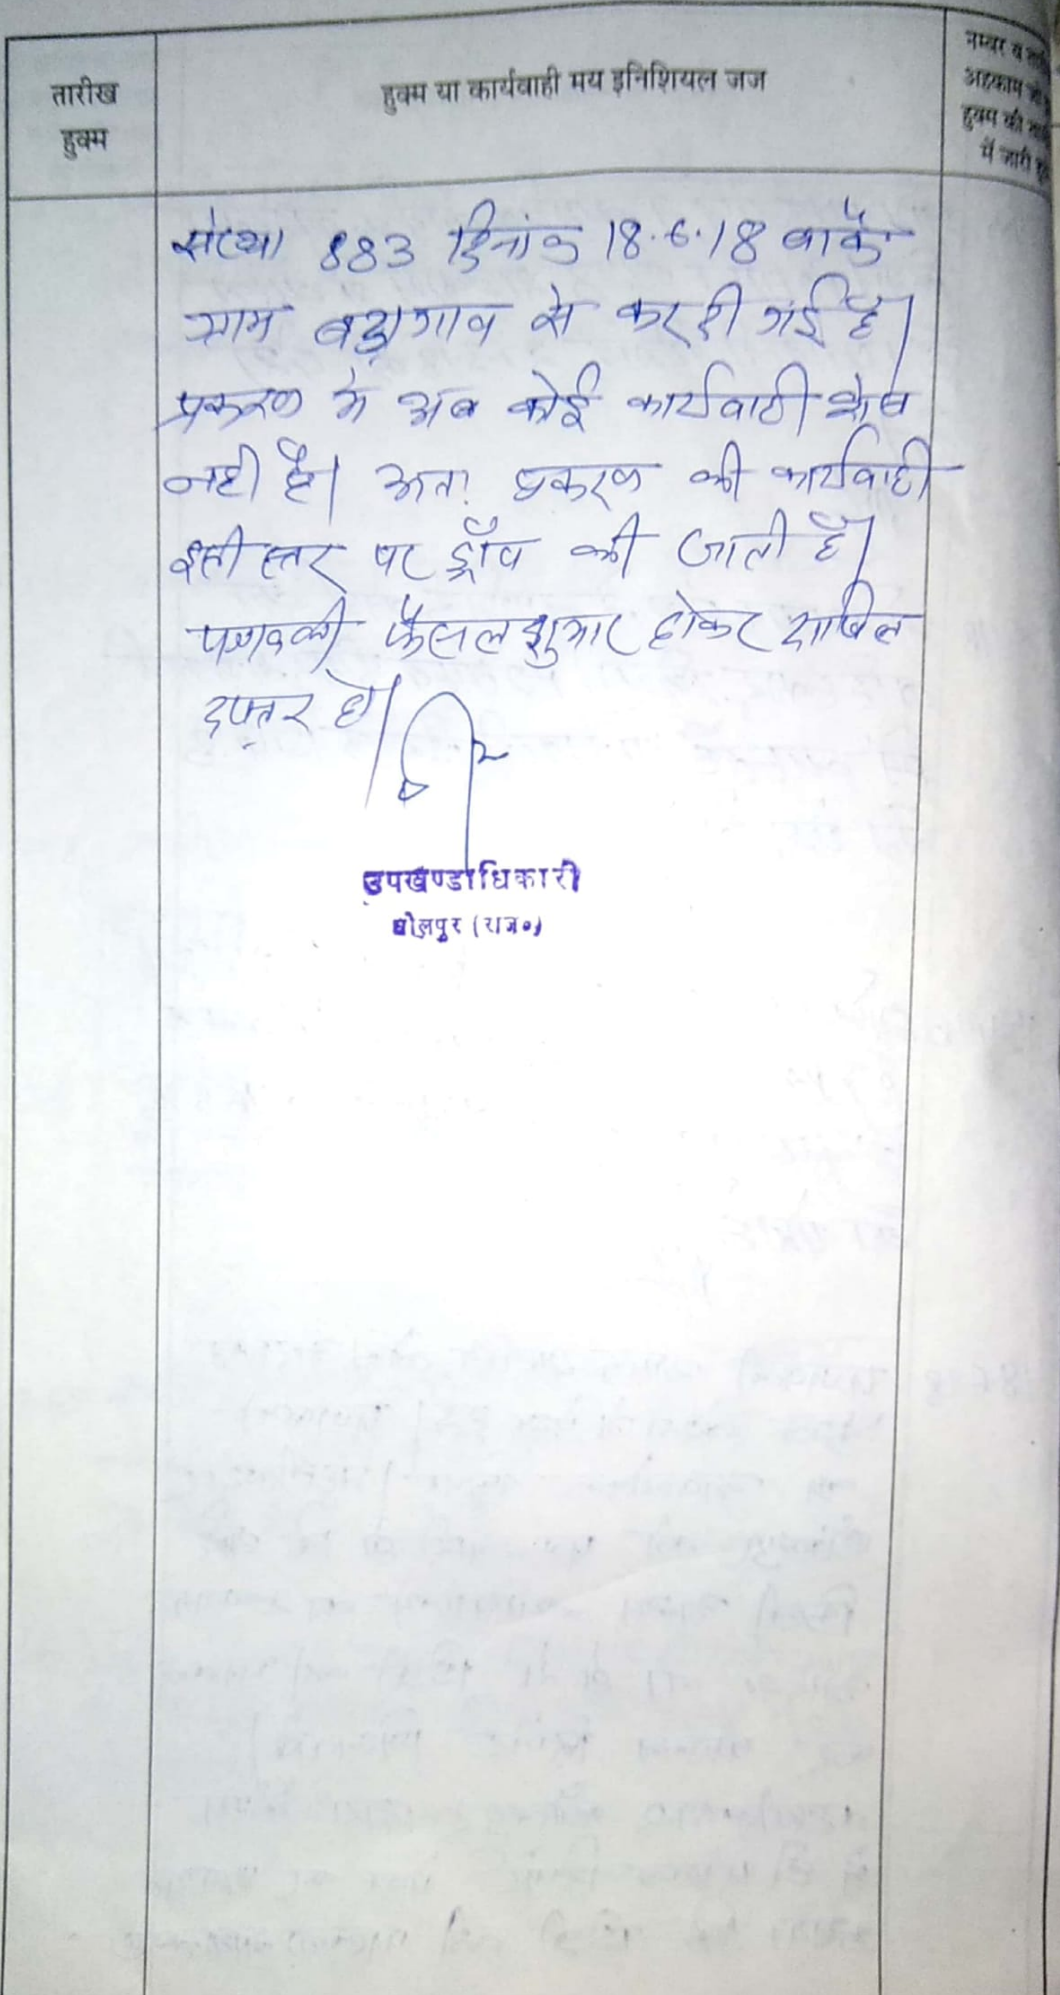 तारीख
हुक्म
हुक्म या कार्यवाही मय इनिशियल जज
नम्बर व
अहकाम
हुक्म की
में जारी
संख्या 883 दिनांक 18.6.18 वाकै
ग्राम बड़ागाव से कर दी गई है।
प्रकरण मे अब कोई कार्यवाही शेष
नही है। अतः प्रकरण की कार्यवाही
इसी स्तर पर ड्रॉप की जाती है।
पत्रावली फैसल शुमार होकर दाखिल
दफ्तर हो।
उपखण्डाधिकारी
धोलपुर (राज०)